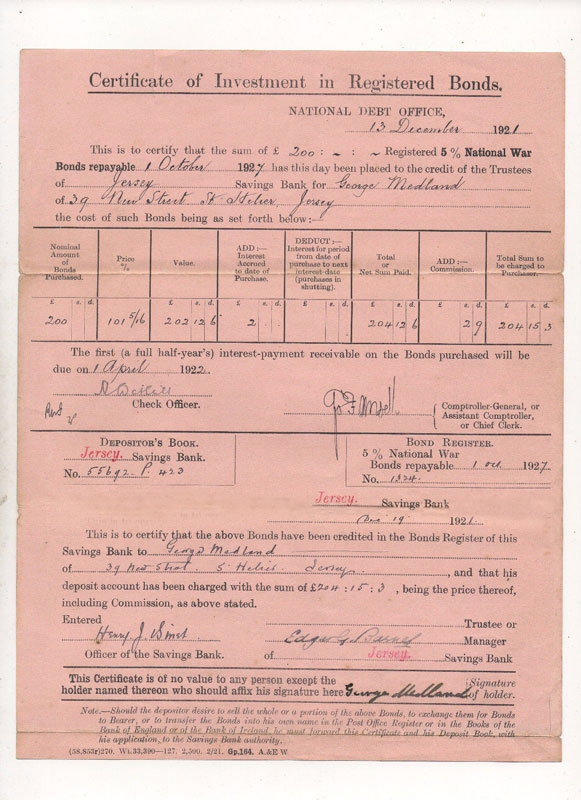 Certificate of Investment in Registered Bonds.
NATIONAL DEBT OFFICE,
13 December 1921
This is to certify that the sum of £ 200 : - : - Registered 5% National War
Bonds repayable 1 October 1927 has this day been placed to the credit of the Trustees
of Jersey Savings Bank for George Medland
of 39 New Street St Helier, Jersey
the cost of such Bonds being as set forth below:—
Nominal Amount of Bonds Purchased.
Price %
Value.
ADD:— Interest Accrued to date of Purchase.
DEDUCT:— Interest for period from date of purchase to next interest-date (purchases in shutting).
Total or Net Sum Paid.
ADD:— Commission.
Total Sum to be charged to Purchaser.
£ s. d. £ s. d. £ s. d. £ s. d. £ s. d. £ s. d. £ s. d.
200 101 5/16 202 12 6 2 204 12 6 2 9 204 15 3
The first (a full half-year's) interest-payment receivable on the Bonds purchased will be
due on 1 April 1922.
Check Officer.
Comptroller-General, or
Assistant Comptroller,
or Chief Clerk.
DEPOSITOR'S BOOK.
Jersey. Savings Bank.
No. 55692. P. 423
BOND REGISTER.
5 % National War
Bonds repayable 1 Oct. 1927.
No. 1324.
Jersey. Savings Bank
Dec 19 1921
This is to certify that the above Bonds have been credited in the Bonds Register of this
Savings Bank to George Medland
of 39 New Street St Helier Jersey, and that his
deposit account has been charged with the sum of £204 : 15 : 3, being the price thereof,
including Commission, as above stated.
Entered
Trustee or
Henry J.
Edgar G Barnes
Manager
Officer of the Savings Bank.
of Jersey. Savings Bank
This Certificate is of no value to any person except the
holder named thereon who should affix his signature here George Medland
Signature
of holder.
Note.—Should the depositor desire to sell the whole or a portion of the above Bonds, to exchange them for Bonds
to Bearer, or to transfer the Bonds into his own name in the Post Office Register or in the Books of the
Bank of England or of the Bank of Ireland, he must forward this Certificate and his Deposit Book, with
his application, to the Savings Bank authority.
(58,853r)270. Wt.33,300—127. 2,500. 2/21. Gp.164. A.& E W.